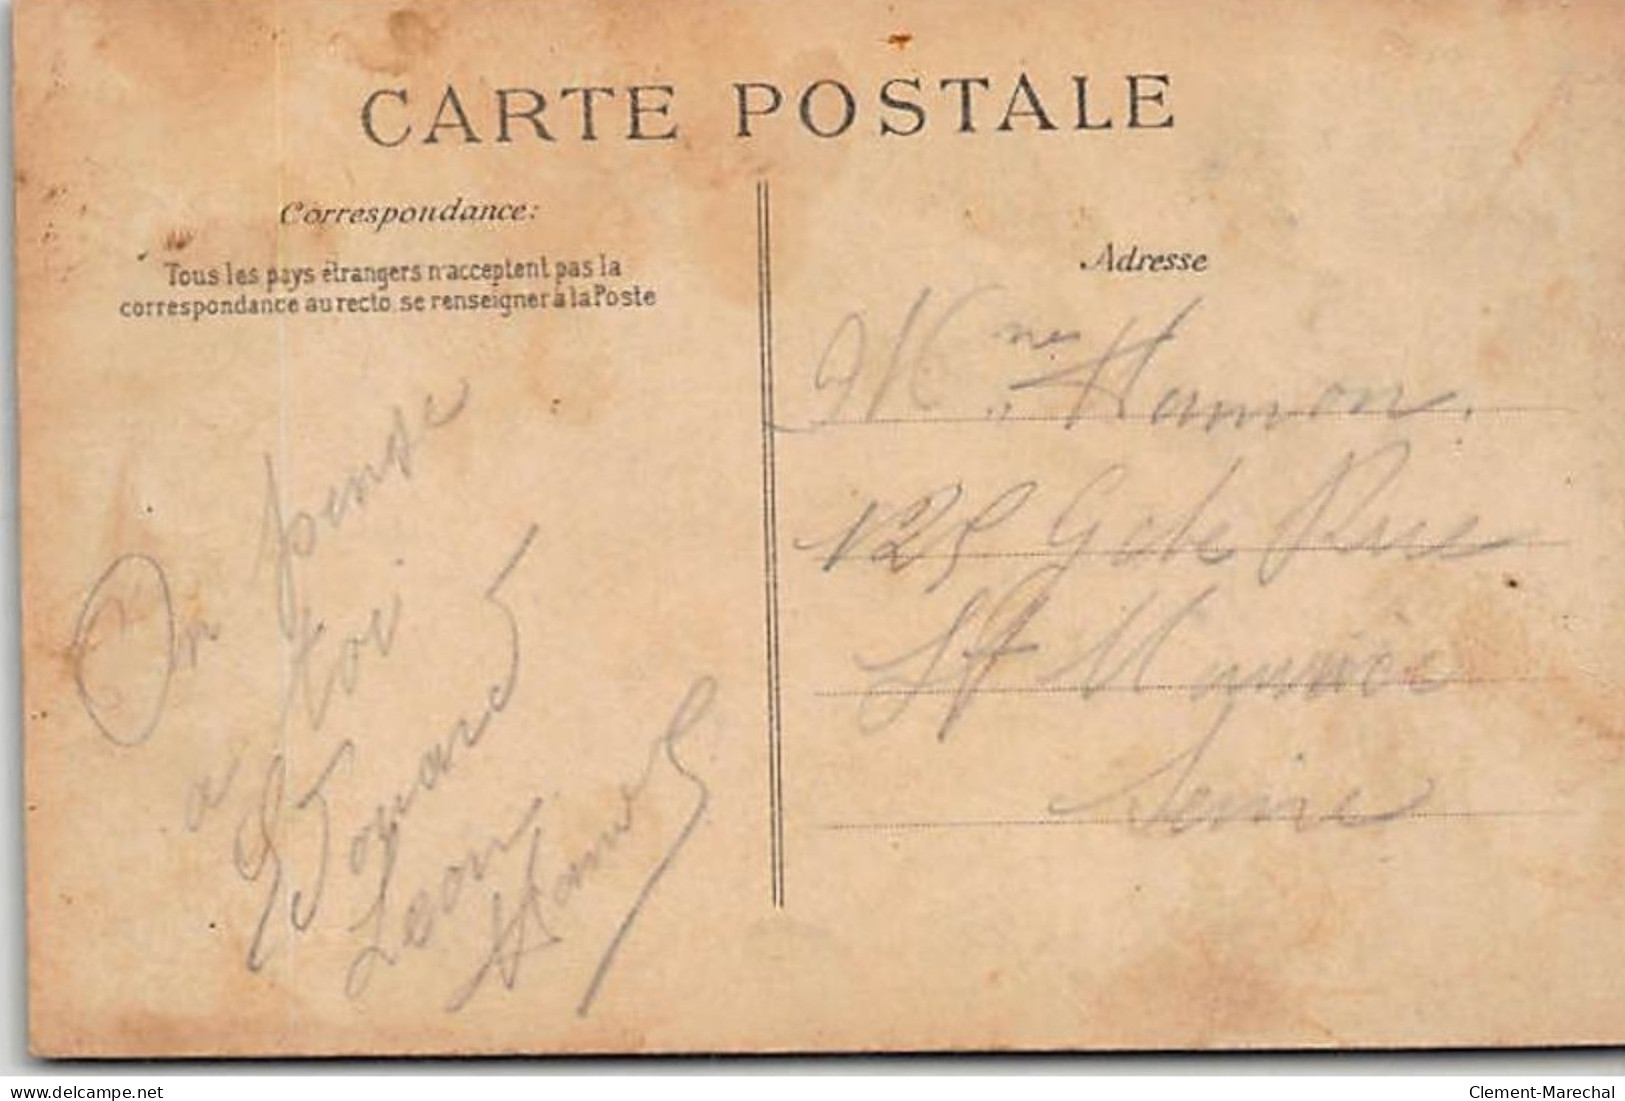 CARTE POSTALE
Correspondance:
Tous les pays étrangers n'acceptent pas la
correspondance au recto, se renseigner à la Poste
On pense
a toi
Leon
Hamon
Adresse
Mme Hamon.
125 Gde Rue
St Maurice
Seine
www.delcampe.net
Clement-Marechal